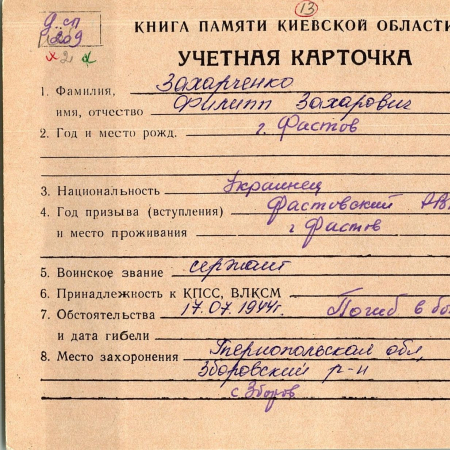 13
209
КНИГА ПАМЯТИ КИЕВСКОЙ ОБЛАСТИ
УЧЕТНАЯ КАРТОЧКА
1. Фамилия, Захарченко
имя, отчество Филипп Захарович
2. Год и место рожд. г. Фастов
3. Национальность Украинец
4. Год призыва (вступления) Фастовский РВ
и место проживания г Фастов
5. Воинское звание сержант
6. Принадлежность к КПСС, ВЛКСМ
7. Обстоятельства 17.07.1944г. Погиб в бо
и дата гибели
8. Место захоронения Тернопольская обл,
Зборовский р-н
с. Зборов